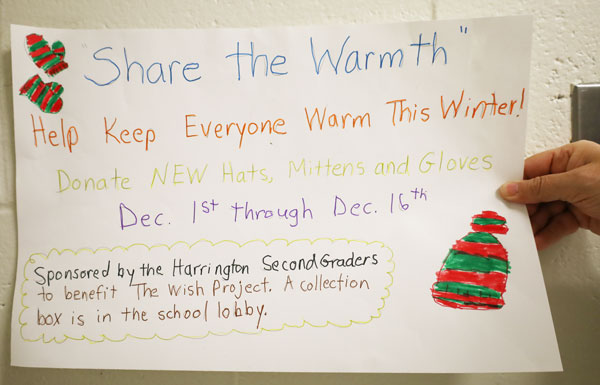 "Share the Warmth"
Help Keep Everyone Warm This Winter!
Donate NEW Hats, Mittens and Gloves
Dec. 1st through Dec. 16th
Sponsored by the Harrington Second Graders
to benefit The Wish Project. A collection
box is in the school lobby.